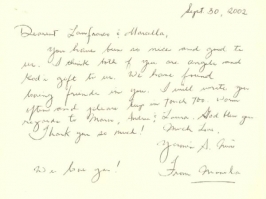 Sept 30, 2002
Dearest
you have been so nice and good to
us. I think both of you are angels and
God's gift to us. We have found
loving friends in you. I will write you
often and please keep in touch too. Warm
regards to & God bless you
Thank you so much! Much love,
We love you! From